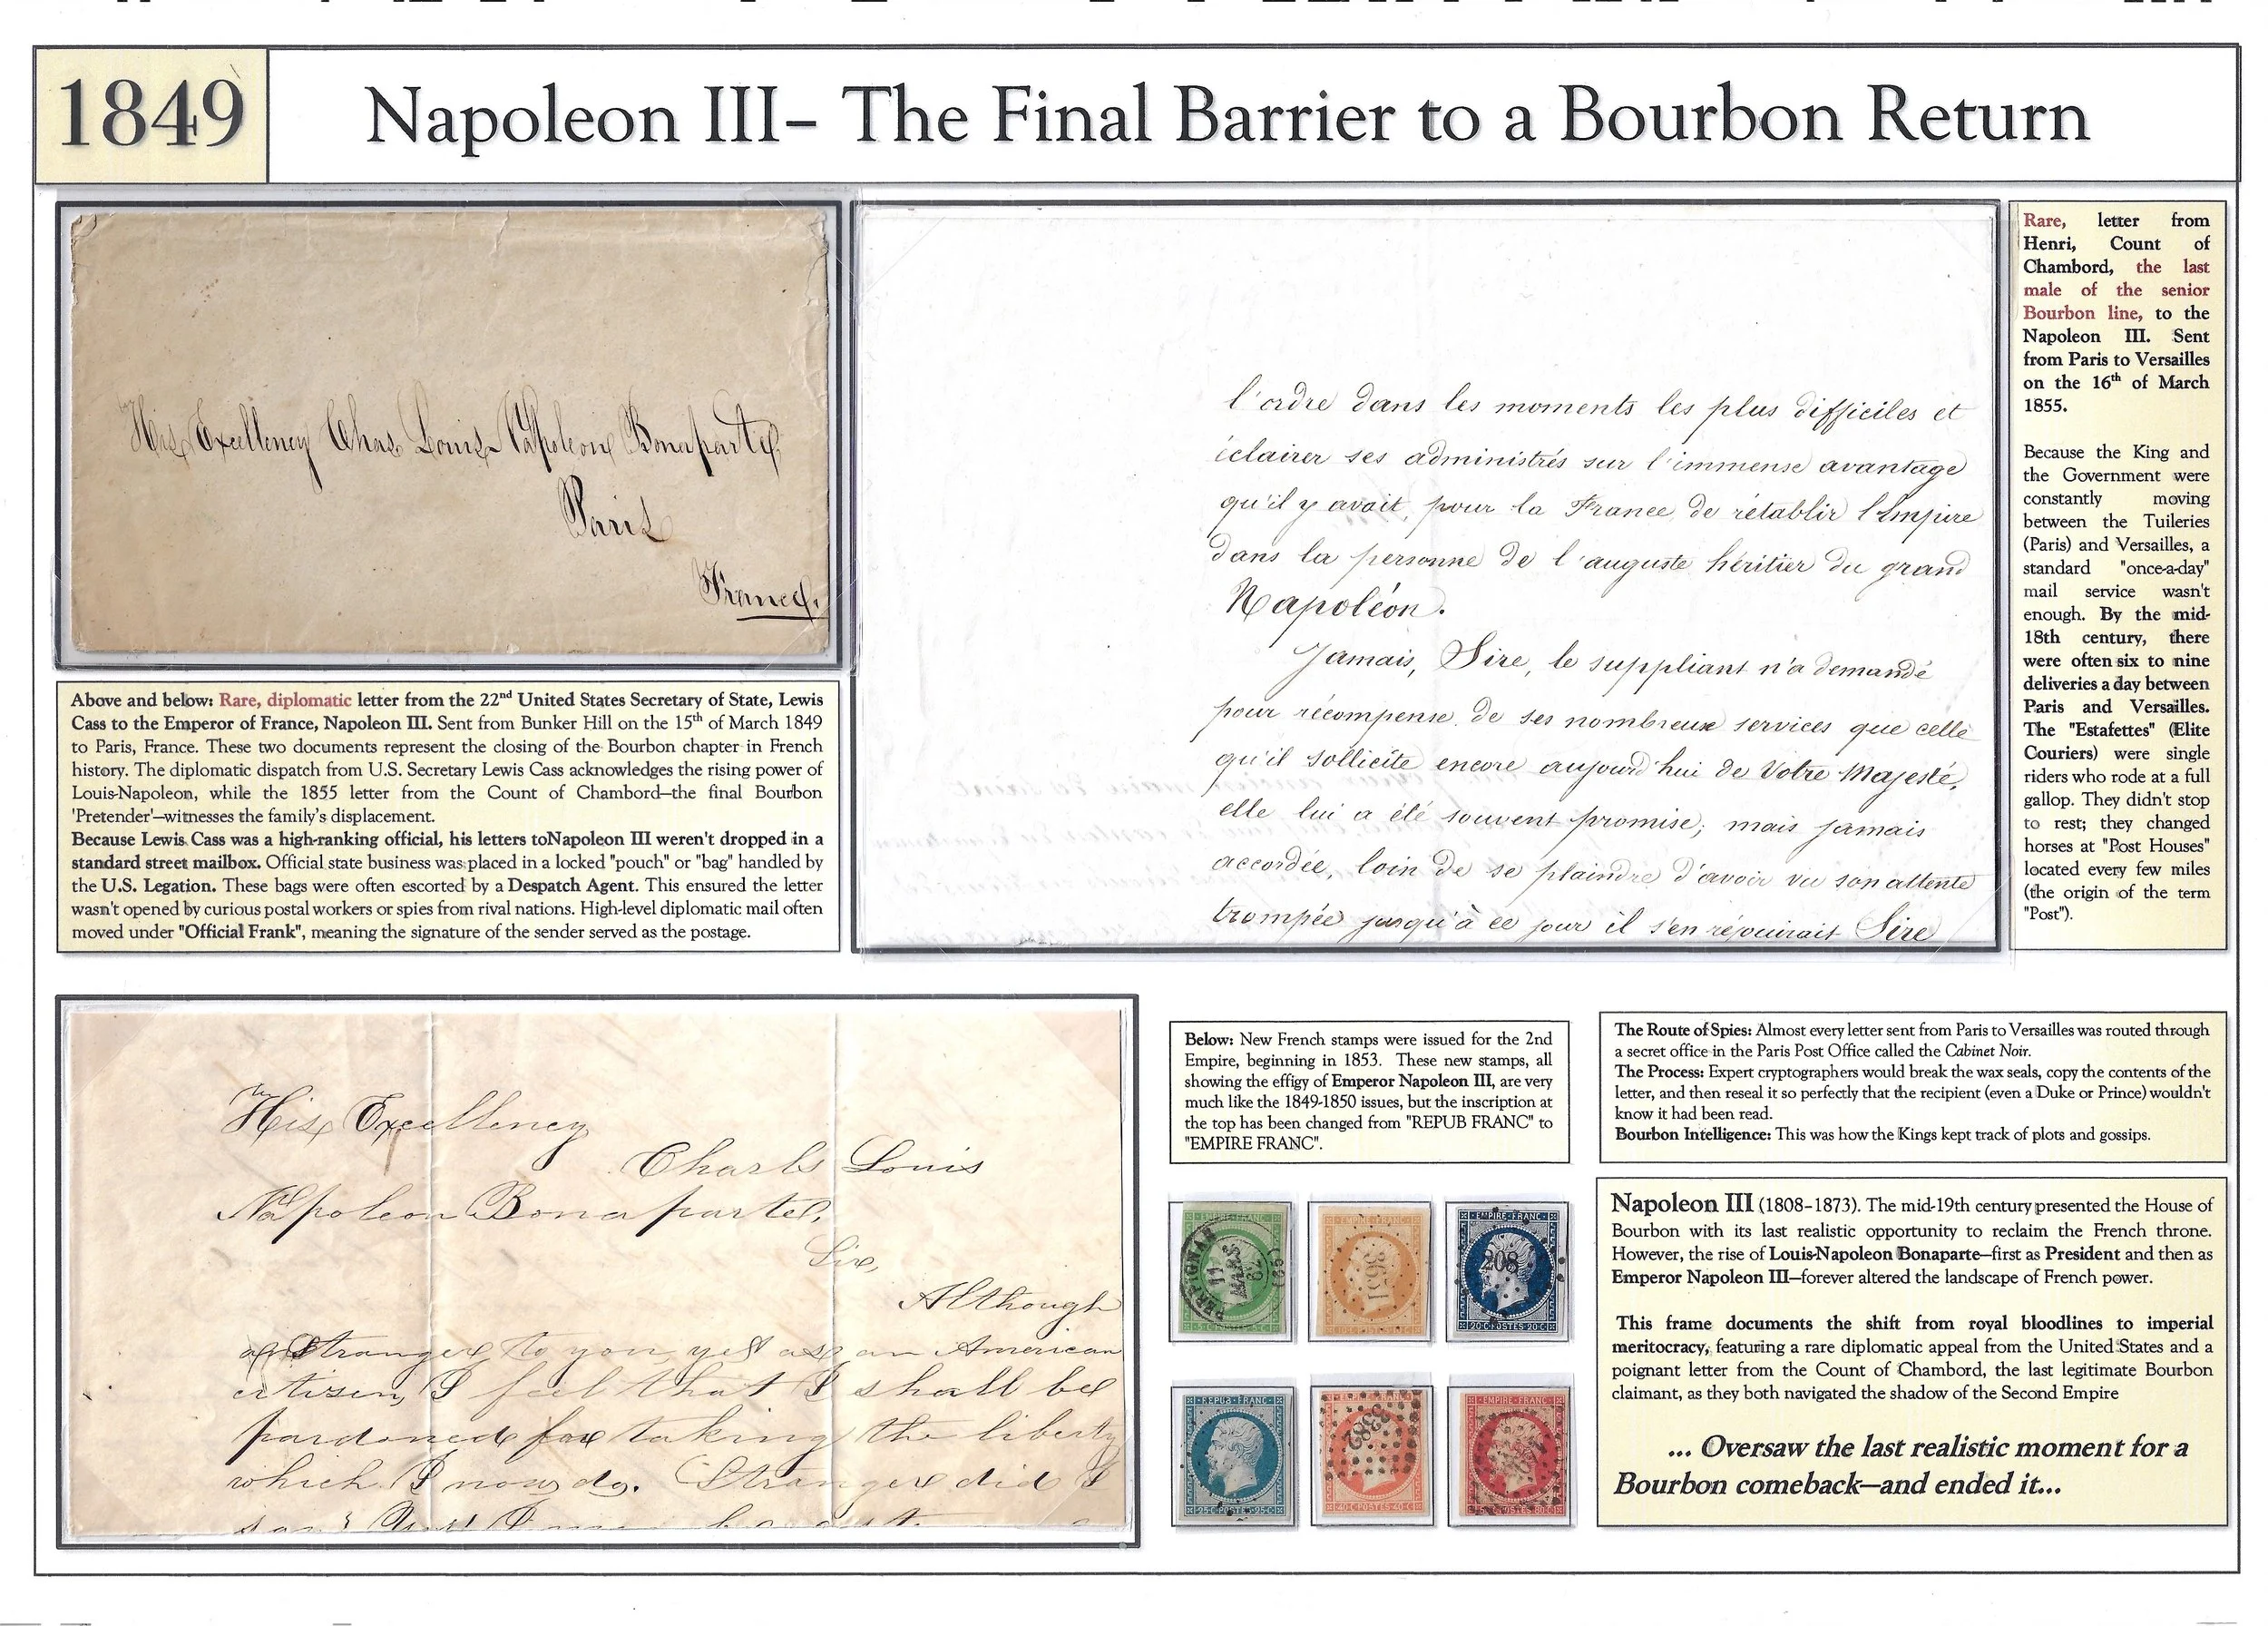 1849
Napoleon III– The Final Barrier to a Bourbon Return
His Excellency Chas Louis Napoleon Bonaparte,
Paris
France.
l'ordre dans les moments les plus difficiles et
éclairer ses administrés sur l'immense avantage
qu'il y avait, pour la France de rétablir l'Empire
dans la personne de l'auguste héritier du grand
Napoléon.
Jamais, Sire, le suppliant n'a demandé
pour récompense de ses nombreux services que celle
qu'il sollicite encore aujourd'hui de Votre Majesté,
elle lui a été souvent promise; mais jamais
accordée, loin de se plaindre d'avoir vu son attente
trompée jusqu'à ce jour il s'en réjouirait Sire
Rare, letter from
Henri, Count of
Chambord, the last
male of the senior
Bourbon line, to the
Napoleon III. Sent
from Paris to Versailles
on the 16th of March
1855.
Because the King and
the Government were
constantly moving
between the Tuileries
(Paris) and Versailles, a
standard "once-a-day"
mail service wasn't
enough. By the mid-
18th century, there
were often six to nine
deliveries a day between
Paris and Versailles.
The "Estafettes" (Elite
Couriers) were single
riders who rode at a full
gallop. They didn't stop
to rest; they changed
horses at "Post Houses"
located every few miles
(the origin of the term
"Post").
Above and below: Rare, diplomatic letter from the 22nd United States Secretary of State, Lewis
Cass to the Emperor of France, Napoleon III. Sent from Bunker Hill on the 15th of March 1849
to Paris, France. These two documents represent the closing of the Bourbon chapter in French
history. The diplomatic dispatch from U.S. Secretary Lewis Cass acknowledges the rising power of
Louis-Napoleon, while the 1855 letter from the Count of Chambord—the final Bourbon
'Pretender'—witnesses the family's displacement.
Because Lewis Cass was a high-ranking official, his letters toNapoleon III weren't dropped in a
standard street mailbox. Official state business was placed in a locked "pouch" or "bag" handled by
the U.S. Legation. These bags were often escorted by a Despatch Agent. This ensured the letter
wasn't opened by curious postal workers or spies from rival nations. High-level diplomatic mail often
moved under "Official Frank", meaning the signature of the sender served as the postage.
His Excellency
Charls Louis
Napoleon Bonaparte,
Sir,
Although
a Stranger to you, yet as an American
citizen, I feel that I shall be
pardoned for taking the liberty
which I now do. Stranger did I
Below: New French stamps were issued for the 2nd
Empire, beginning in 1853. These new stamps, all
showing the effigy of Emperor Napoleon III, are very
much like the 1849-1850 issues, but the inscription at
the top has been changed from "REPUB FRANC" to
"EMPIRE FRANC".
The Route of Spies: Almost every letter sent from Paris to Versailles was routed through
a secret office in the Paris Post Office called the Cabinet Noir.
The Process: Expert cryptographers would break the wax seals, copy the contents of the
letter, and then reseal it so perfectly that the recipient (even a Duke or Prince) wouldn't
know it had been read.
Bourbon Intelligence: This was how the Kings kept track of plots and gossips.
EMPIRE FRANC
PERPIGNAN
11
MARS
62
(65)
5 C 5 C
EMPIRE FRANC
EMPIRE FRANC
208
20 C POSTES 20 C
REPUB FRANC
25 C POSTES 25 C
2382
40 C POSTES 40 C
EMPIRE FRANC
POSTES 80 C
Napoleon III (1808–1873). The mid-19th century presented the House of
Bourbon with its last realistic opportunity to reclaim the French throne.
However, the rise of Louis-Napoleon Bonaparte—first as President and then as
Emperor Napoleon III—forever altered the landscape of French power.
This frame documents the shift from royal bloodlines to imperial
meritocracy, featuring a rare diplomatic appeal from the United States and a
poignant letter from the Count of Chambord, the last legitimate Bourbon
claimant, as they both navigated the shadow of the Second Empire
... Oversaw the last realistic moment for a
Bourbon comeback—and ended it...